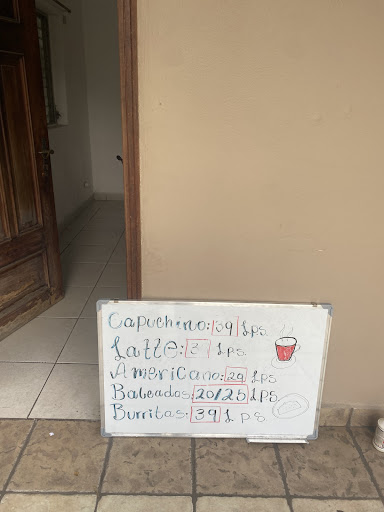 Capuchino: 39 Lps.
Latte: 3 Lps.
Americano: 29 Lps
Baleadas: 20/25 Lps
Burritas: 39 Lps.